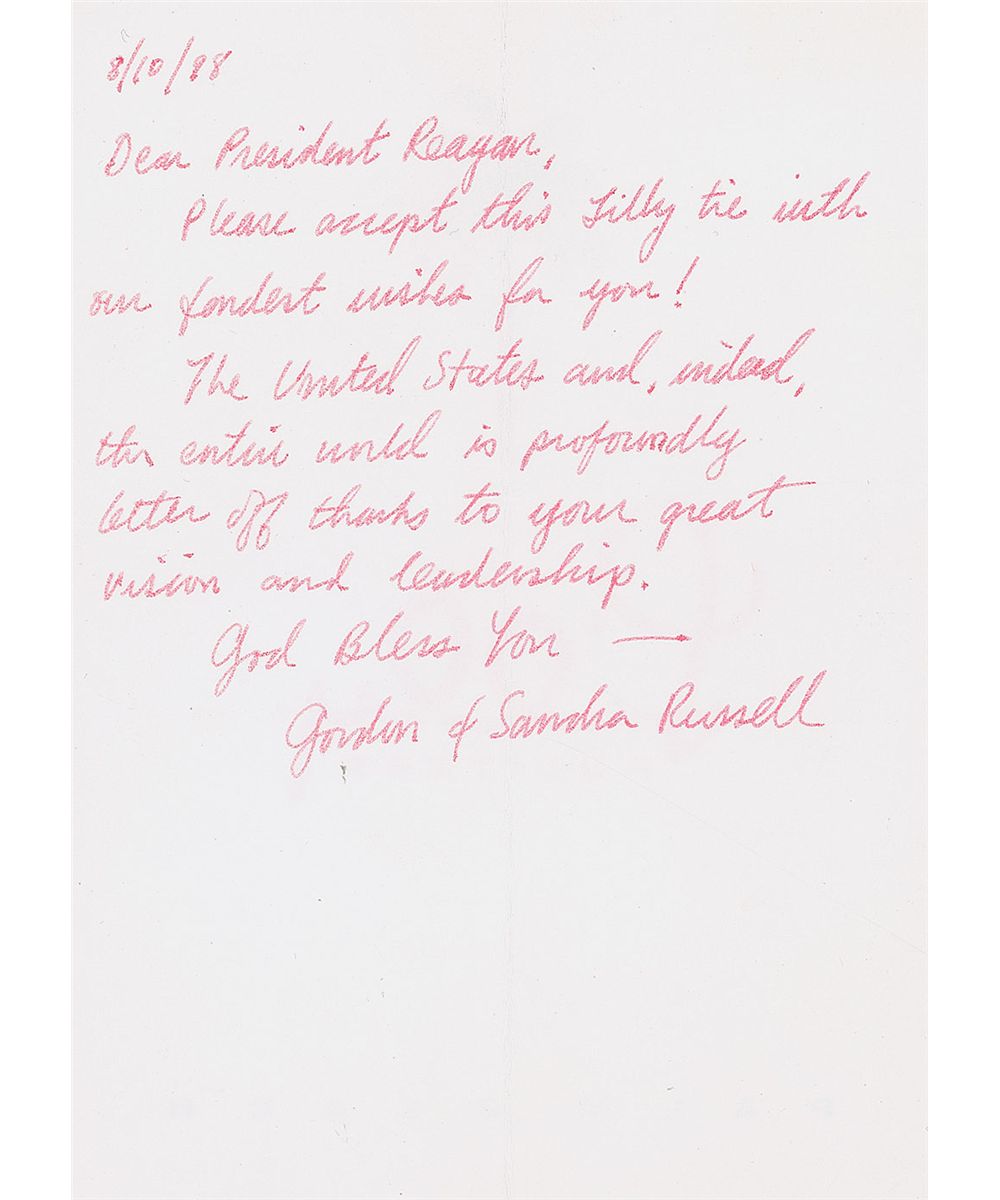 8/10/98
Dear President Reagan,
Please accept this Lilly tie with
our fondest wishes for you!
The United States and, indeed,
the entire world is profoundly
better off thanks to your great
vision and leadership.
God Bless You —
Gordon & Sandra Russell